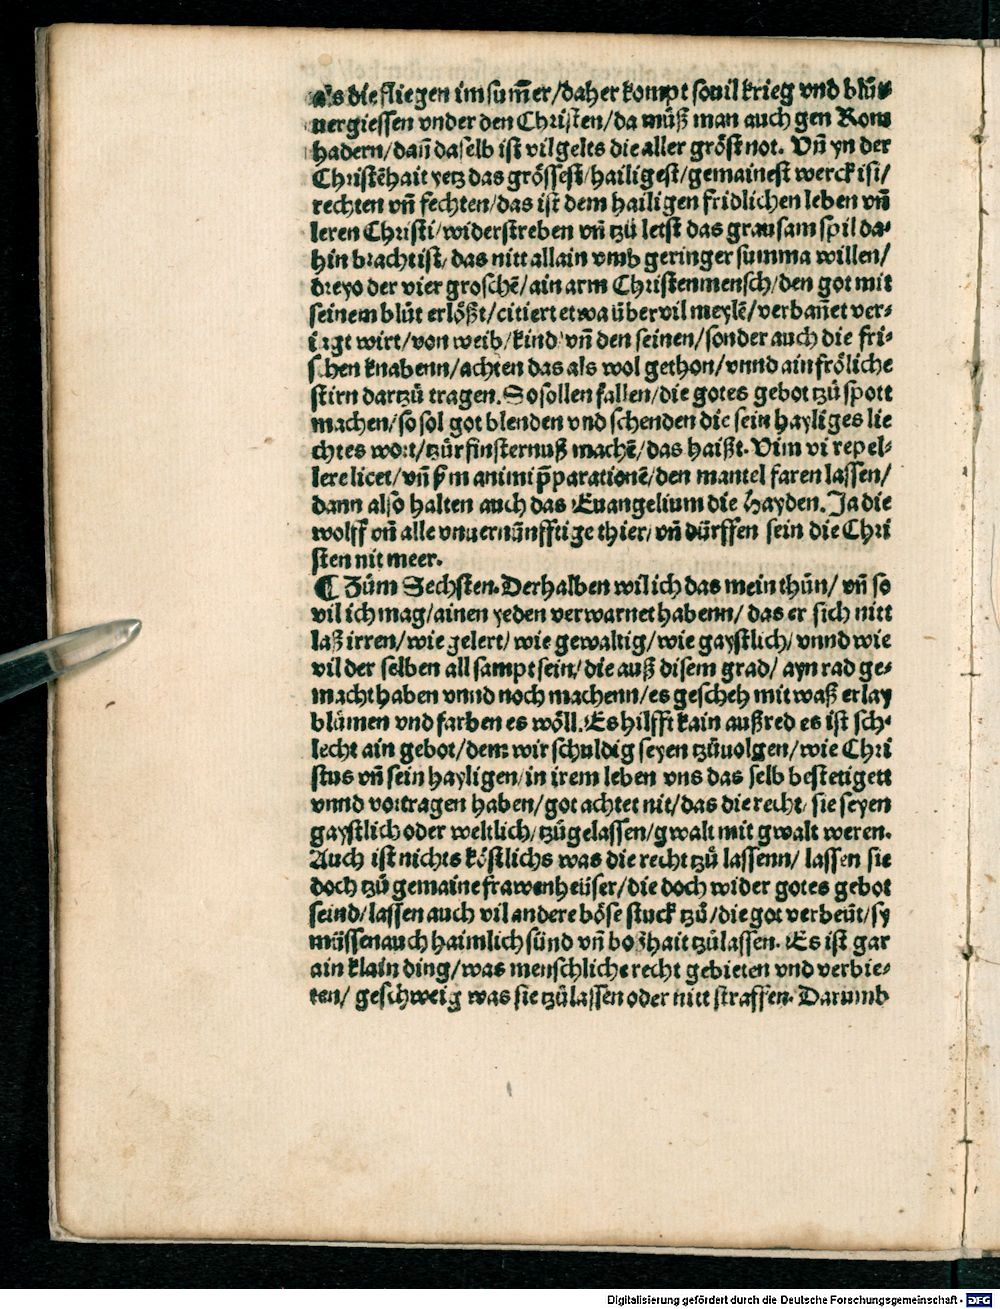 als die fliegen im sum̄er/daher kompt souil krieg vnd blůt
uergiessen vnder den Christen/da můß man auch gen Rom
hadern/dañ daselb ist vil gelts die aller gröst not. Vñ yn der
Christēhait yetz das grössest/hailigest/gemainest werck ist/
rechten vñ fechten/das ist dem hailigen fridlichen leben vñ
leren Christi/widerstreben vñ tzů letst das grausam spil da-
hin bracht ist/das nitt allain vmb geringer summa willen/
dreyo der vier groschē/ain arm Christenmensch/den got mit
seinem blůt erlößt/citiert etwa über vil meylē/verbañet ver-
iagt wirt/von weib/kind/vñ den seinen/sonder auch die fri-
schen knabenn/achten das als wol gethon/vnnd ain fröliche
stirn dartzů tragen. So sollen fallen/die gotes gebot tzů spott
machen/so sol got blenden vnd schenden die sein hayliges lie
chtes wort/tzůr finsternuß machē/das haißt. Vim vi repel-
lere licet/vñ p̄m animi p̄parationē/den mantel faren lassen/
dann also halten auch das Euangelium die Hayden. Ja die
wolff vñ alle vnuernünfftige thier/vñ dürffen sein die Chri
sten nit meer.
¶ Zům Sechsten. Derhalben wil ich das mein thůn/vñ so
vil ich mag/ainen yeden verwarnet habenn/das er sich nitt
laß irren/wie gelert/wie gewaltig/wie gaystlich/vnnd wie
vil der selben all sampt sein/die auß disem grad/ayn rad ge-
macht haben vnnd noch machenn/es gescheh mit waß erlay
blůmen vnd farben es wöll. Es hilfft kain außred es ist sch-
lecht ain gebot/dem wir schuldig seyen tzůuolgen/wie Chri
stus vñ sein hayligen/in irem leben vns das selb bestetigett
vnnd vortragen haben/got achtet nit/das die recht/sie seyen
gaystlich oder weltlich/tzůgelassen/gwalt mit gwalt weren.
Auch ist nichts köstlichs was die recht tzů lassenn/lassen sie
doch tzů gemaine frawenheüser/die doch wider gotes gebot
seind/lassen auch vil andere böse stuck tzů/die got verbeüt/sy
müssen auch haimlich sünd vñ boßhait tzůlassen. Es ist gar
ain klain ding/was menschliche recht gebieten vnd verbie-
ten/geschweig was sie tzůlassen oder nitt straffen. Darumb
Digitalisierung gefördert durch die Deutsche Forschungsgemeinschaft - DFG